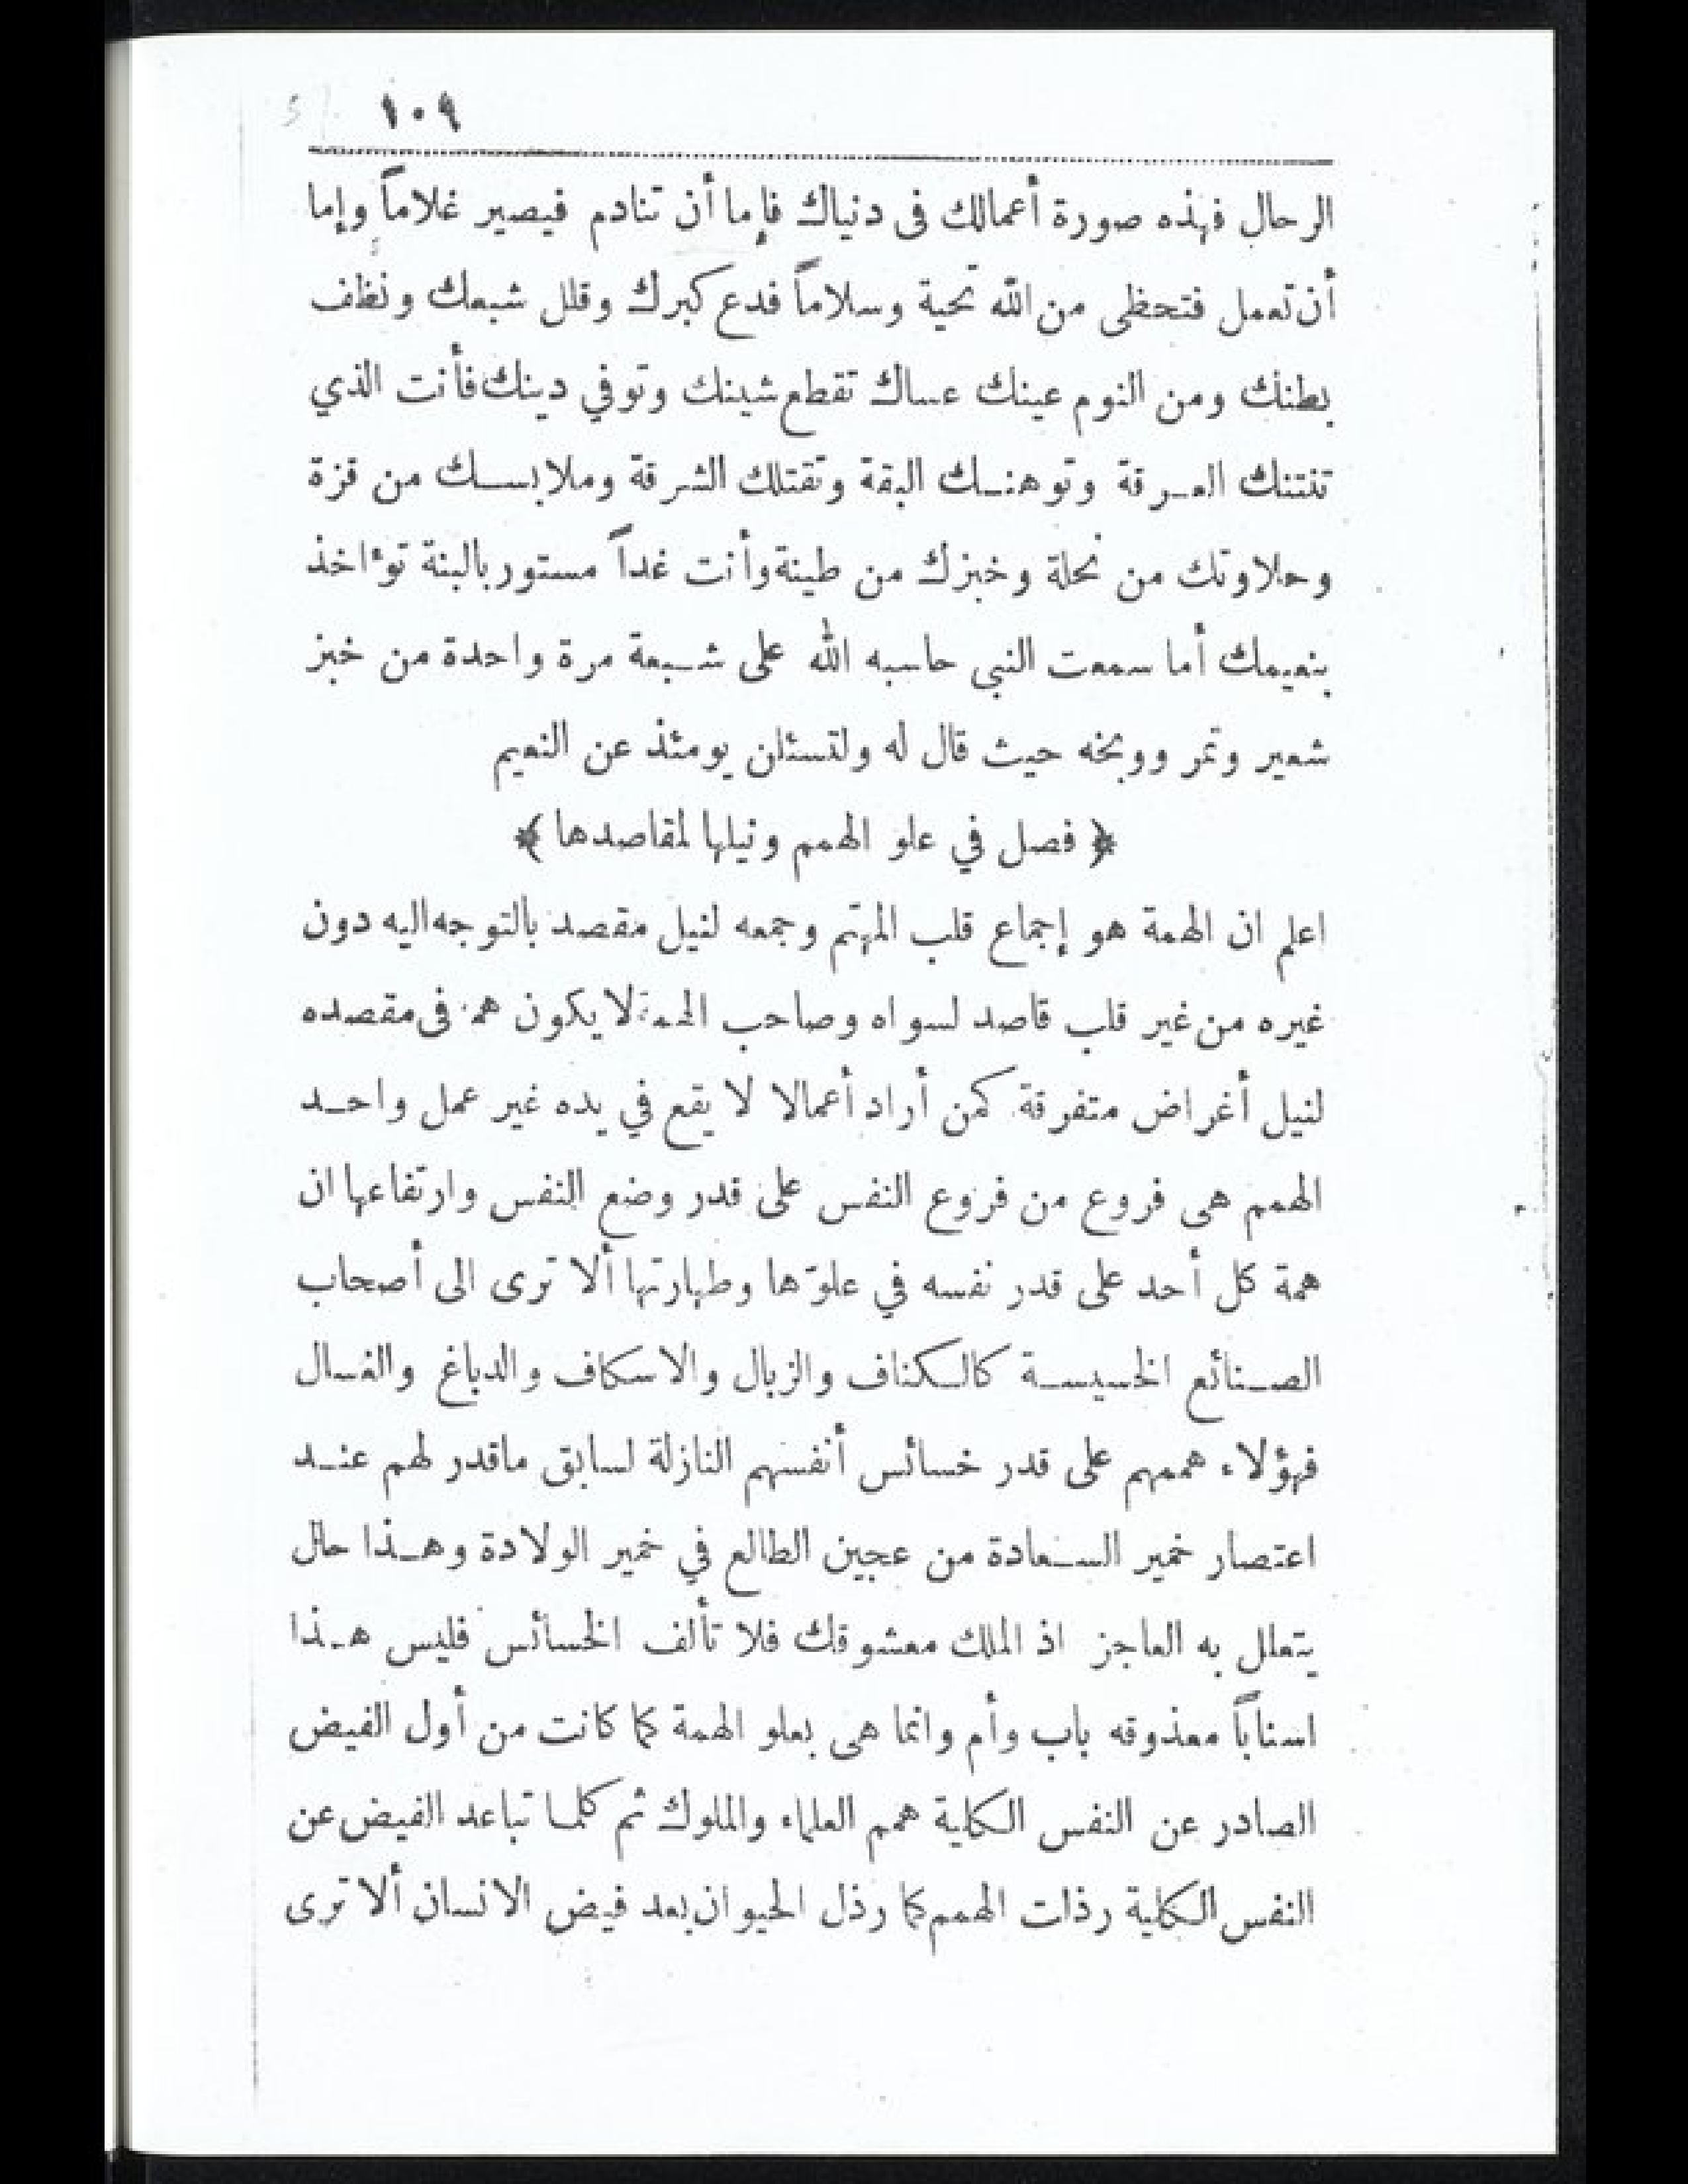 ١٠٩
الرحال فهذه صورة أعمالك فى دنياك فإما أن تنادم فيصير غلاماً وإما
أن تعمل فتحظى من الله تحية وسلاماً فدع كبرك وقلل شبعك ونظف
بطنك ومن النوم عينك عساك تقطع شينك وتوفي دينك فأنت الذي
تنتنك العرقة وتوهنك البقة وتقتلك الشرقة وملابسك من قزة
وحلاوتك من نحلة وخبزك من طينة وأنت غداً مستور بالبنة تؤاخذ
بنعيمك أما سمعت النبى حاسبه الله على شبعة مرة واحدة من خبز
شعير وتمر ووبخه حيث قال له ولتسئلن يومئذ عن النعيم
﴿ فصل في علو الهمم ونيلها لمقاصدها ﴾
اعلم ان الهمة هو إجماع قلب المهتم وجمعه لنيل مقصد بالتوجه اليه دون
غيره من غير قلب قاصد لسواه وصاحب الهمة لا يكون همه فى مقصده
لنيل أغراض متفرقة كمن أراد أعمالا لا يقع في يده غير عمل واحد
الهمم هى فروع من فروع النفس على قدر وضع النفس وارتفاعها ان
همة كل أحد على قدر نفسه في علوّها وطهارتها ألا ترى الى أصحاب
الصنائع الخسيسة كالكناف والزبال والاسكاف والدباغ والغسال
فهؤلاء هممهم على قدر خسائس أنفسهم النازلة لسابق ماقدر لهم عند
اعتصار خمير السعادة من عجين الطالع في خمير الولادة وهذا حال
يتعلل به العاجز اذ الملك معشوقك فلا تألف الخسائس فليس هذا
اسناباً معذوقه باب وأم وانما هى بعلو الهمة كما كانت من أول الفيض
الصادر عن النفس الكلية همم العلماء والملوك ثم كلما تباعد الفيض عن
النفس الكلية رذلت الهمم كما رذل الحيوان بعد فيض الانسان ألا ترى